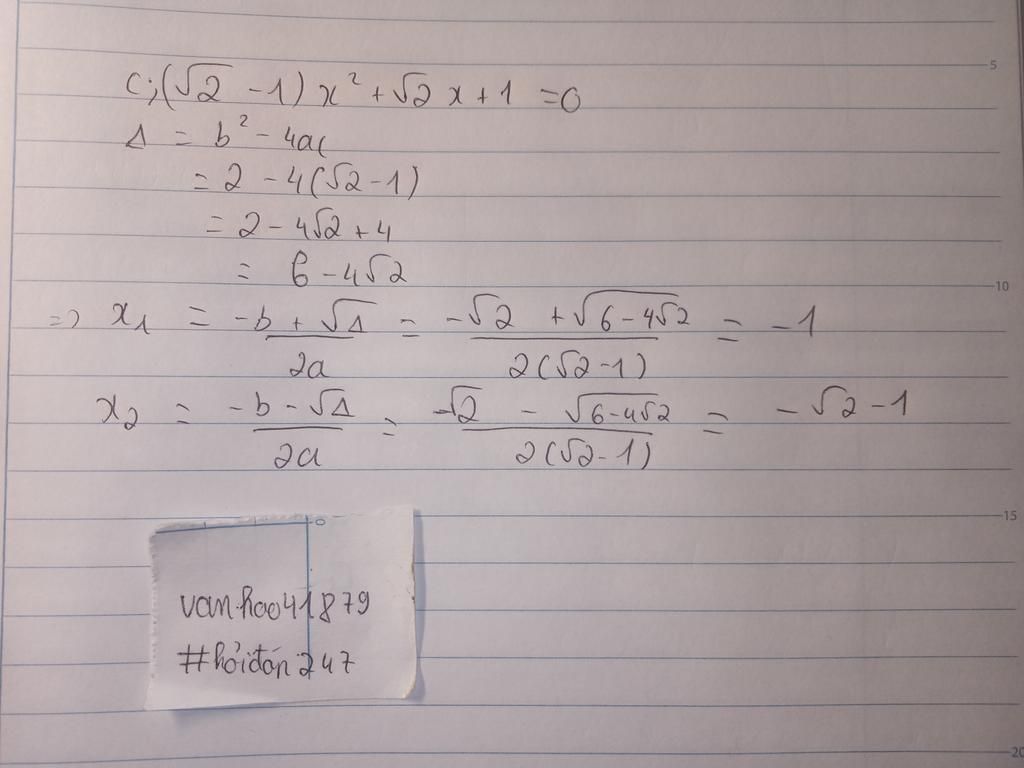 c; (√2 - 1) x² + √2 x + 1 = 0
Δ = b² - 4ac
= 2 - 4(√2 - 1)
= 2 - 4√2 + 4
= 6 - 4√2
=> x₁ = (-b + √Δ)/2a = (-√2 + √(6 - 4√2))/2(√2 - 1) = -1
x₂ = (-b - √Δ)/2a = (-√2 - √(6 - 4√2))/2(√2 - 1) = -√2 - 1
vanhoo41879
#hỏiđáp247
5
10
15
20